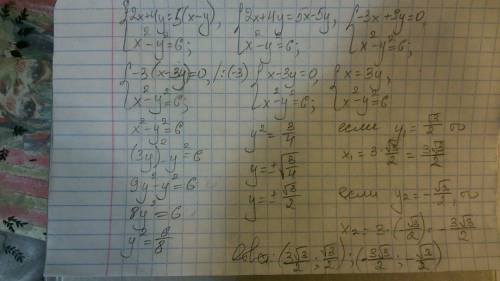 {2x+4y=5(x-y), {2x+4y=5x-5y, {-3x+9y=0,
x²-y²=6; x²-y²=6; x²-y²=6;
{-3(x-3y)=0, /:(-3) {x-3y=0, {x=3y,
x²-y²=6; x²-y²=6; x²-y²=6
x²-y²=6
(3y)²-y²=6
9y²-y²=6
8y²=6
y²=6/8
y²=3/4
y=±√3/4
y=±√3/2
если y₁=√3/2, то
x₁=3·√3/2=3√3/2
если y₂=-√3/2, то
x₂=3·(-√3/2)=-3√3/2
Ответ: (3√3/2; √3/2); (-3√3/2; -√3/2)